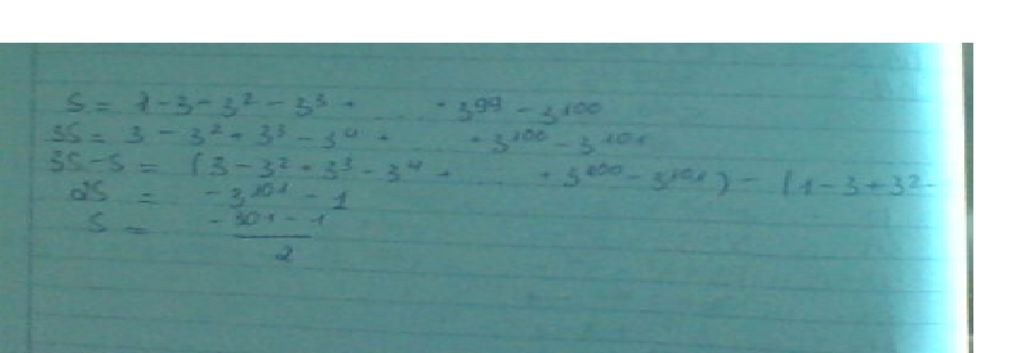 S = 1 - 3 - 3² - 3³ + ... + 3⁹⁹ - 3¹⁰⁰
3S = 3 - 3² + 3³ - 3⁴ + ... + 3¹⁰⁰ - 3¹⁰¹
3S - S = (3 - 3² + 3³ - 3⁴ + ... + 3¹⁰⁰ - 3¹⁰¹) - (1 - 3 + 3² -
2S = - 3¹⁰¹ - 1
S = - 301 - 1
2